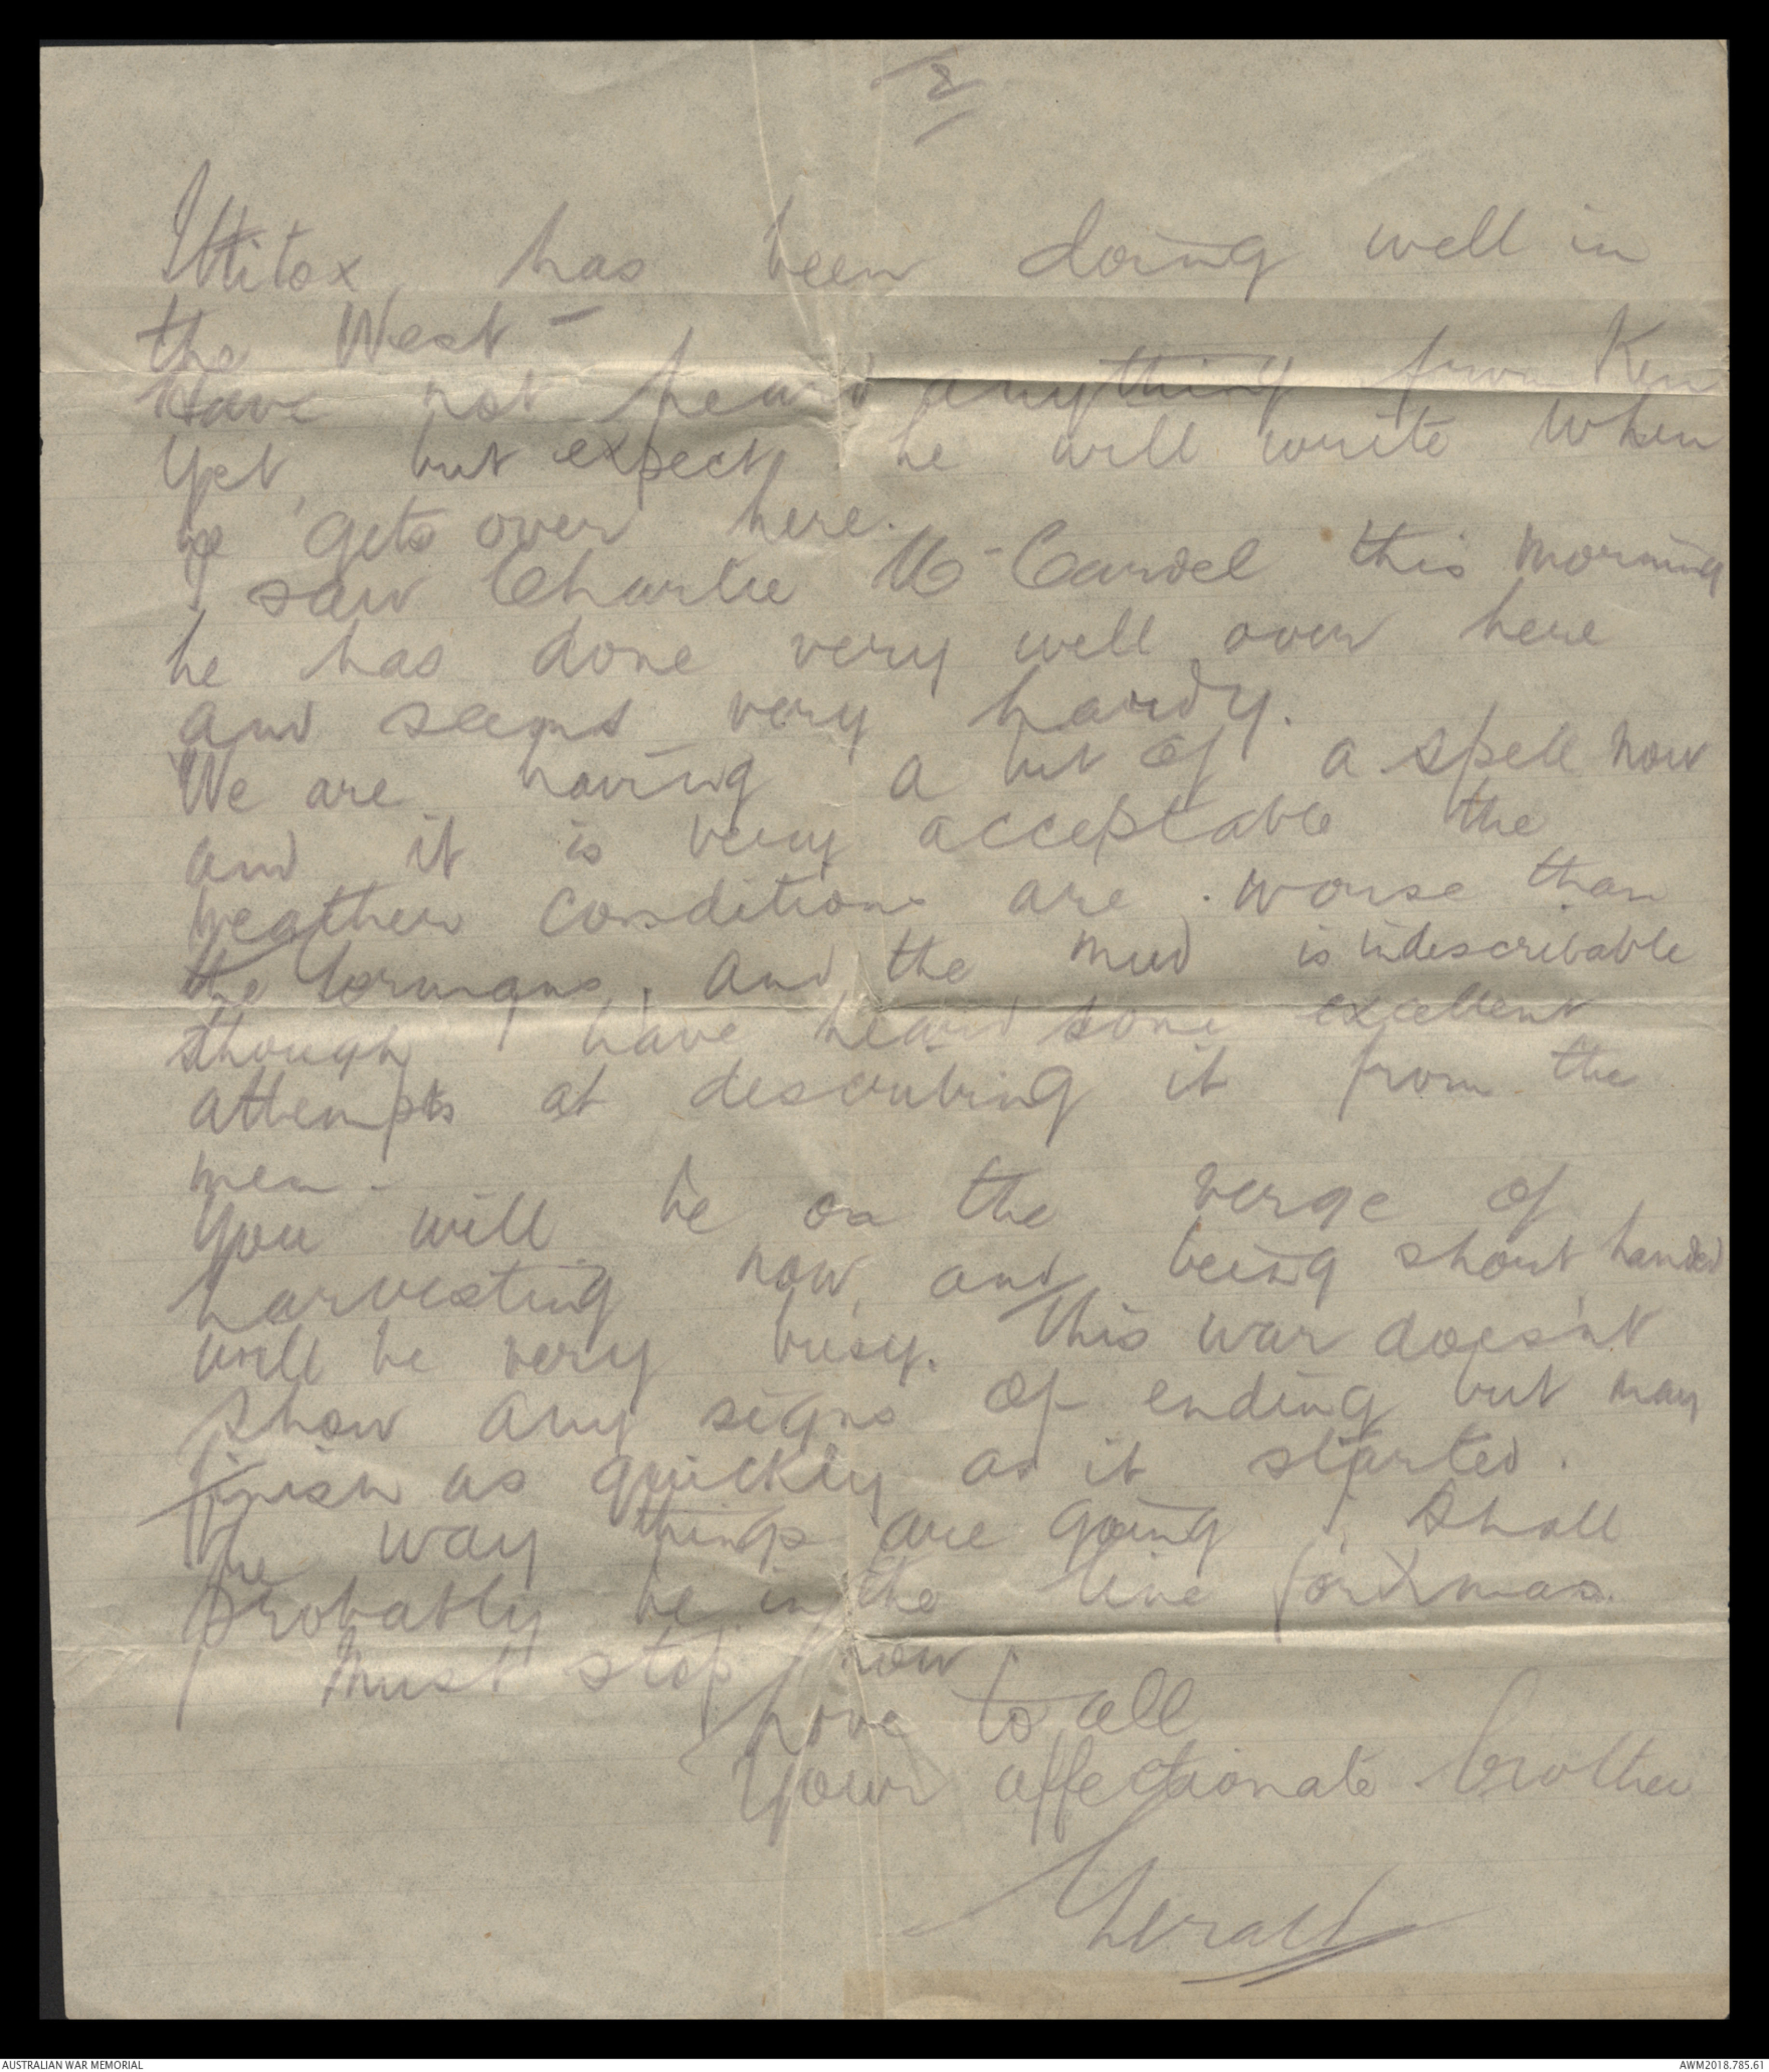 2
has been doing well in
the West -
Have not heard anything from Ken
yet, but expect he will write when
he gets over here.
I saw Charlie Mc Cardel this morning
he has done very well over here
and seems very hardy.
We are having a bit of a spell now
and it is very acceptable the
weather conditions are worse than
the Germans, and the mud is indescribable
though I have heard some excellent
attempts at describing it from the
men -
You will be on the verge of
harvesting now, and being short handed
will be very busy. This war doesn't
show any signs of ending but may
finish as quickly as it started.
The way things are going I shall
probably be in the line for Xmas.
I must stop now
Love to all
Your affectionate brother
AUSTRALIAN WAR MEMORIAL
AWM2018.785.61